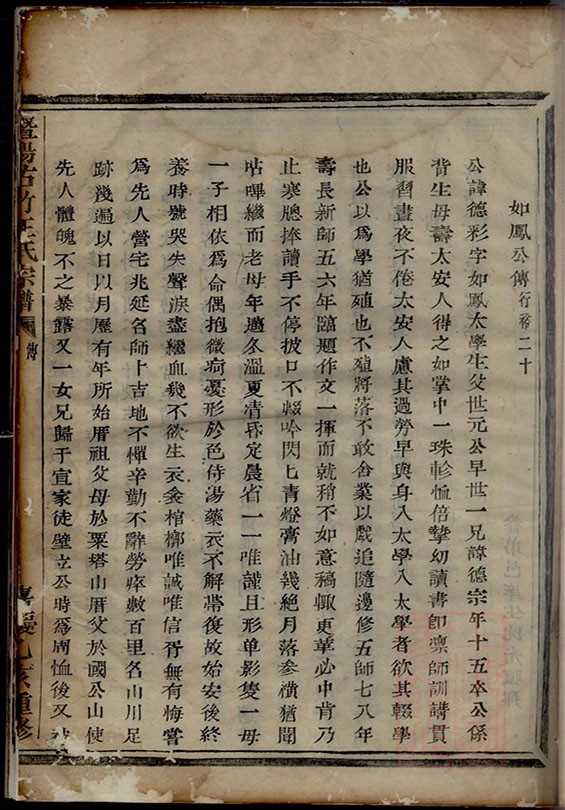 如鳳公傳行裕二十
公諱德彩字如鳳太學生父世元公早世一兄諱德宗年十五卒公係
背生母壽太安人得之如掌中一珠軫恤倍摯幼讀書即稟師訓講貫
服習晝夜不倦太安人慮其過勞早與身入太學入太學者欲其輟學
也公以爲學猶殖也不殖將落不敢舍業以戲追隨邊修五師七八年
壽長新師五六年臨題作文一揮而就稍不如意稿輙更華必中肯乃
止寒牕捧讀手不停披口不輟吟閃匕青燈膏油幾絕月落参橫猶聞
呫嗶繼而老母年邁冬溫夏凊昏定晨省一一唯謹且形单影隻一母
一子相依爲命偶抱微疴憂形於色侍湯藥衣不解帶復故始安後終
養時號哭失聲淚盡繼血幾不欲生衣衾棺槨唯誠唯信胥無有悔嘗
爲先人營宅兆延名師卜吉地不憚辛勤不辭勞瘁數百里名山川足
跡幾遍以日以月歷有年所始厝祖父母於粟塔山厝父於國公山使
先人體魄不之暴露又一女兄歸于宣家徒壁立公時爲周恤後又
暨陽古竹王氏宗譜
傳